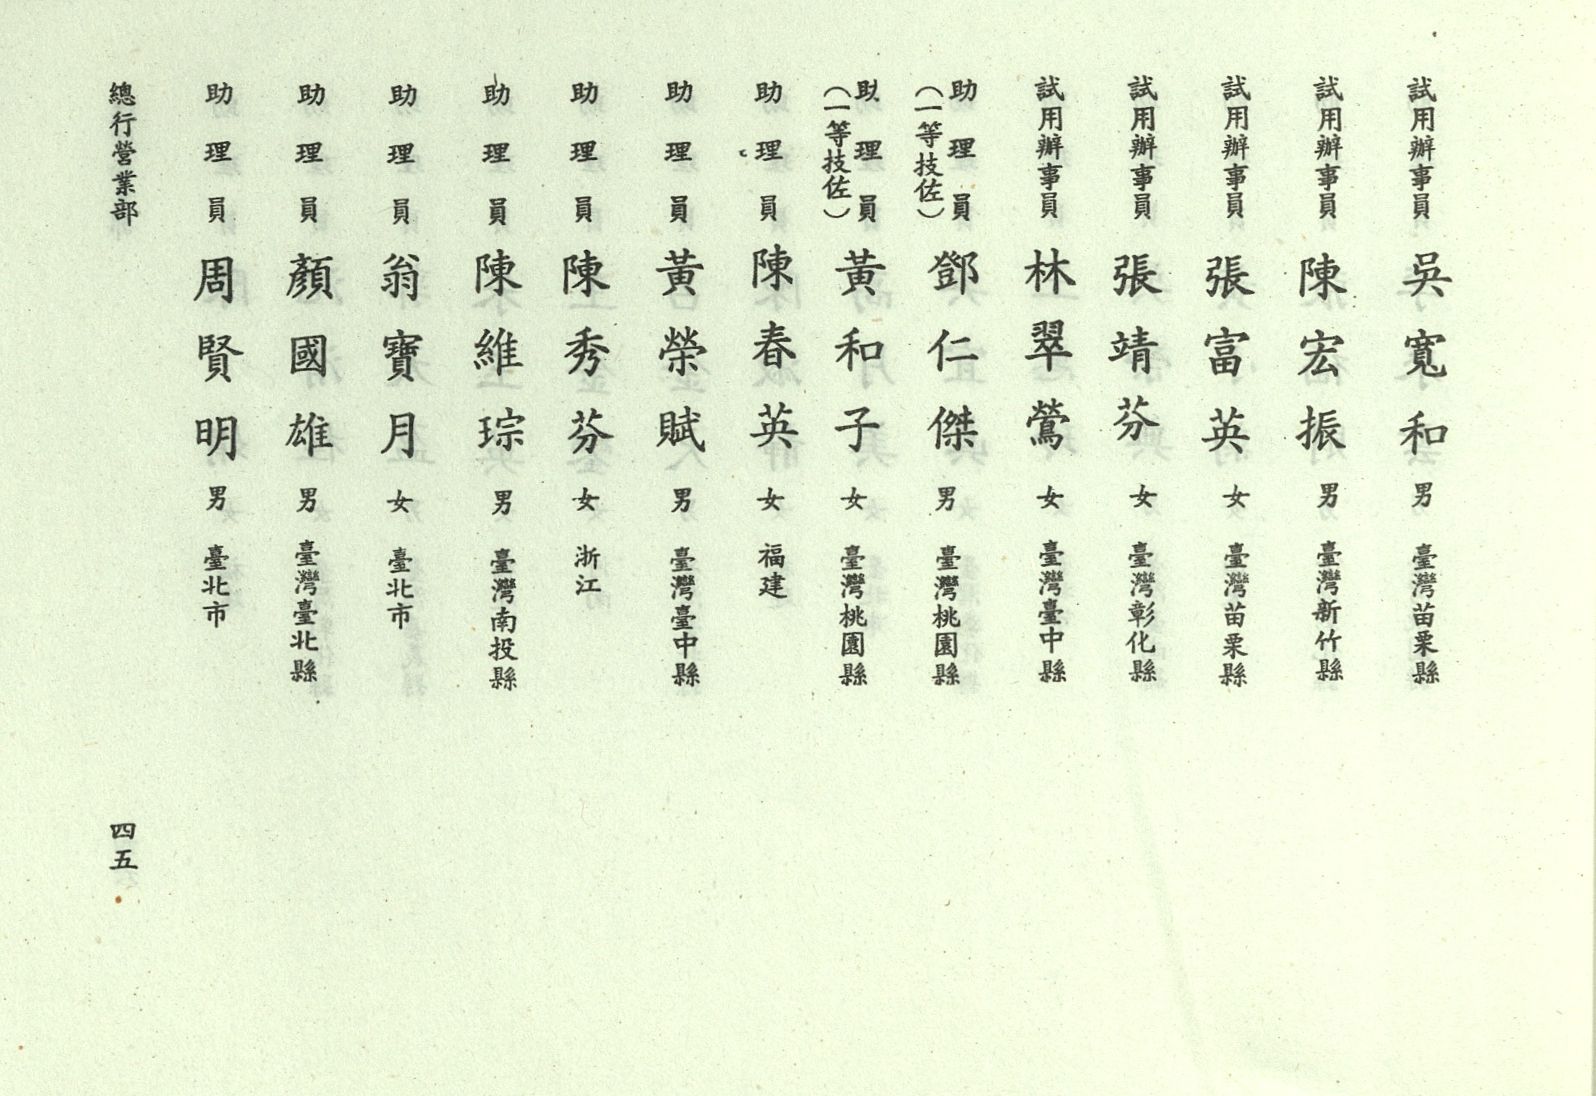 試用辦事員 吳寬和 男 臺灣苗栗縣
試用辦事員 陳宏振 男 臺灣新竹縣
試用辦事員 張富英 女 臺灣苗栗縣
試用辦事員 張靖芬 女 臺灣彰化縣
試用辦事員 林翠鶯 女 臺灣臺中縣
助理員(一等技佐) 鄧仁傑 男 臺灣桃園縣
助理員(一等技佐) 黃和子 女 臺灣桃園縣
助理員 陳春英 女 福建
助理員 黃榮賦 男 臺灣臺中縣
助理員 陳秀芬 女 浙江
助理員 陳維琮 男 臺灣南投縣
助理員 翁寶月 女 臺北市
助理員 顏國雄 男 臺灣臺北縣
助理員 周賢明 男 臺北市
總行營業部 四五